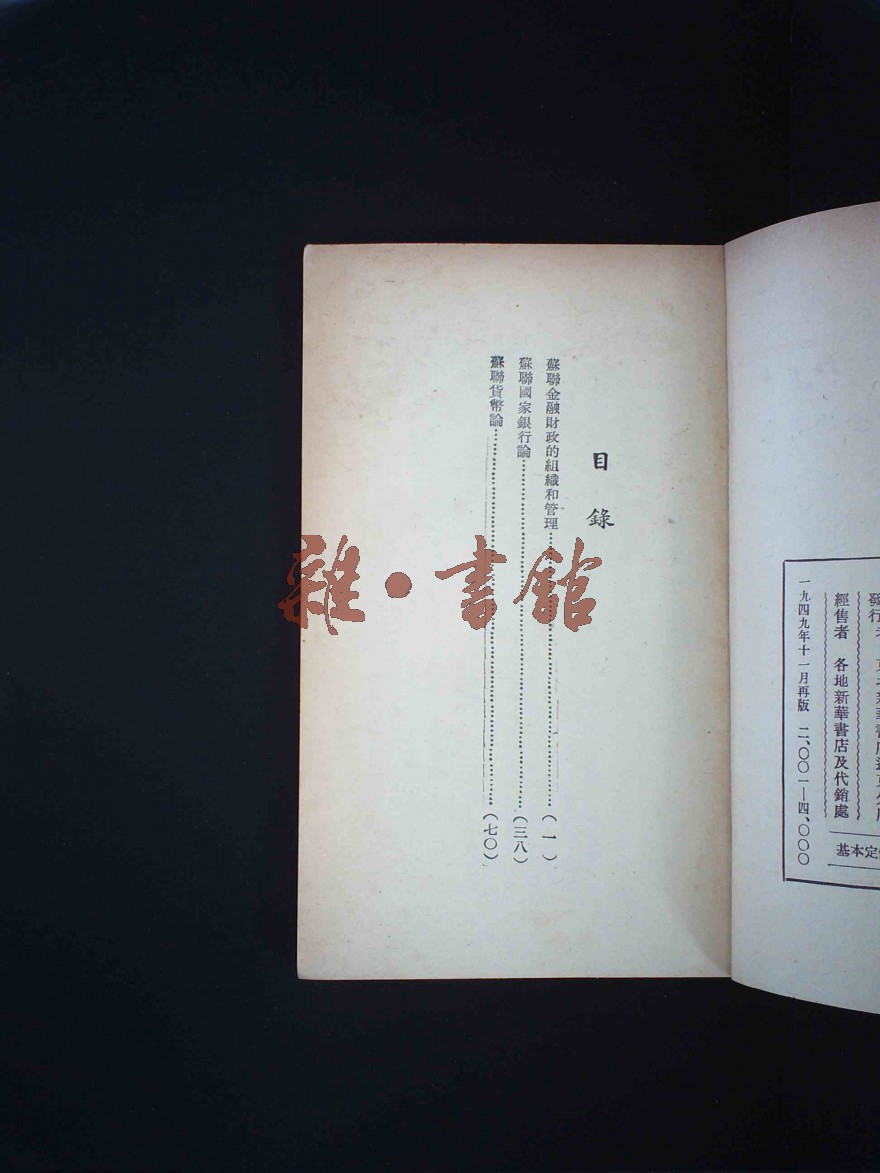 發行者
經售者 各地新華書店及代銷處
一九四九年十一月再版 二、〇〇一—四、〇〇〇
基本定
目錄
蘇聯金融財政的組織和管理……(一)
蘇聯國家銀行論……(三八)
蘇聯貨幣論……(七〇)
雜·書館